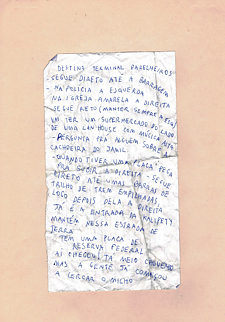 DESTINO TERMINAL PARELHEIROS
SEGUE DIRETO ATÉ A BARRAGEM
NA POLICIA A ESQUERDA
NA IGREJA AMARELA A DIREITA
SEGUE RETO (MANTER SEMPRE RETO)
VAI TER UM SUPERMERCADO DO LADO
DE UMA LAN HOUSE COM MÚSICA ALTA
- PERGUNTA PRA ALGUEM SOBRE A
CACHOEIRA DO JAMIL
- QUANDO TIVER UMA PLACA PEGA
PRA SUBIR A DIREITA - SEGUE
DIRETO ATÉ UMAS BARRAS DE
TRILHO DE TREM EMPILHADAS,
LOGO DEPOIS PELA A DIREITA
JA É A ENTRADA DA KALIPETY
MANTÉM NESSA ESTRADA DE
TERRA
TEM UMA PLACA DE
RESERVA FEDERAL
AI CHEGOU JA MEIO CHOVENDO
MAS A GENTE JA COMEÇOU
A CERCAR O MILHO